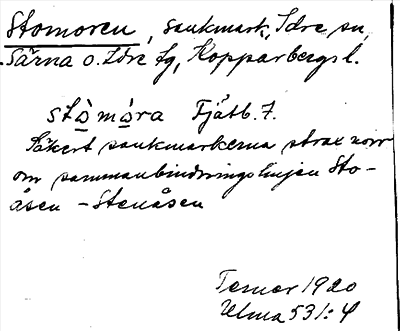 Stomoren, sankmark, Idre sn,
Särna o. Idre tg, Kopparbergs l.
stò̱mò̱ra Fjätb. 7.
Säkert sankmarkerna strax norr
om sammanbindningslinjen Sto-
åsen - Stenåsen
Tenor 1920
Ulma 531:4